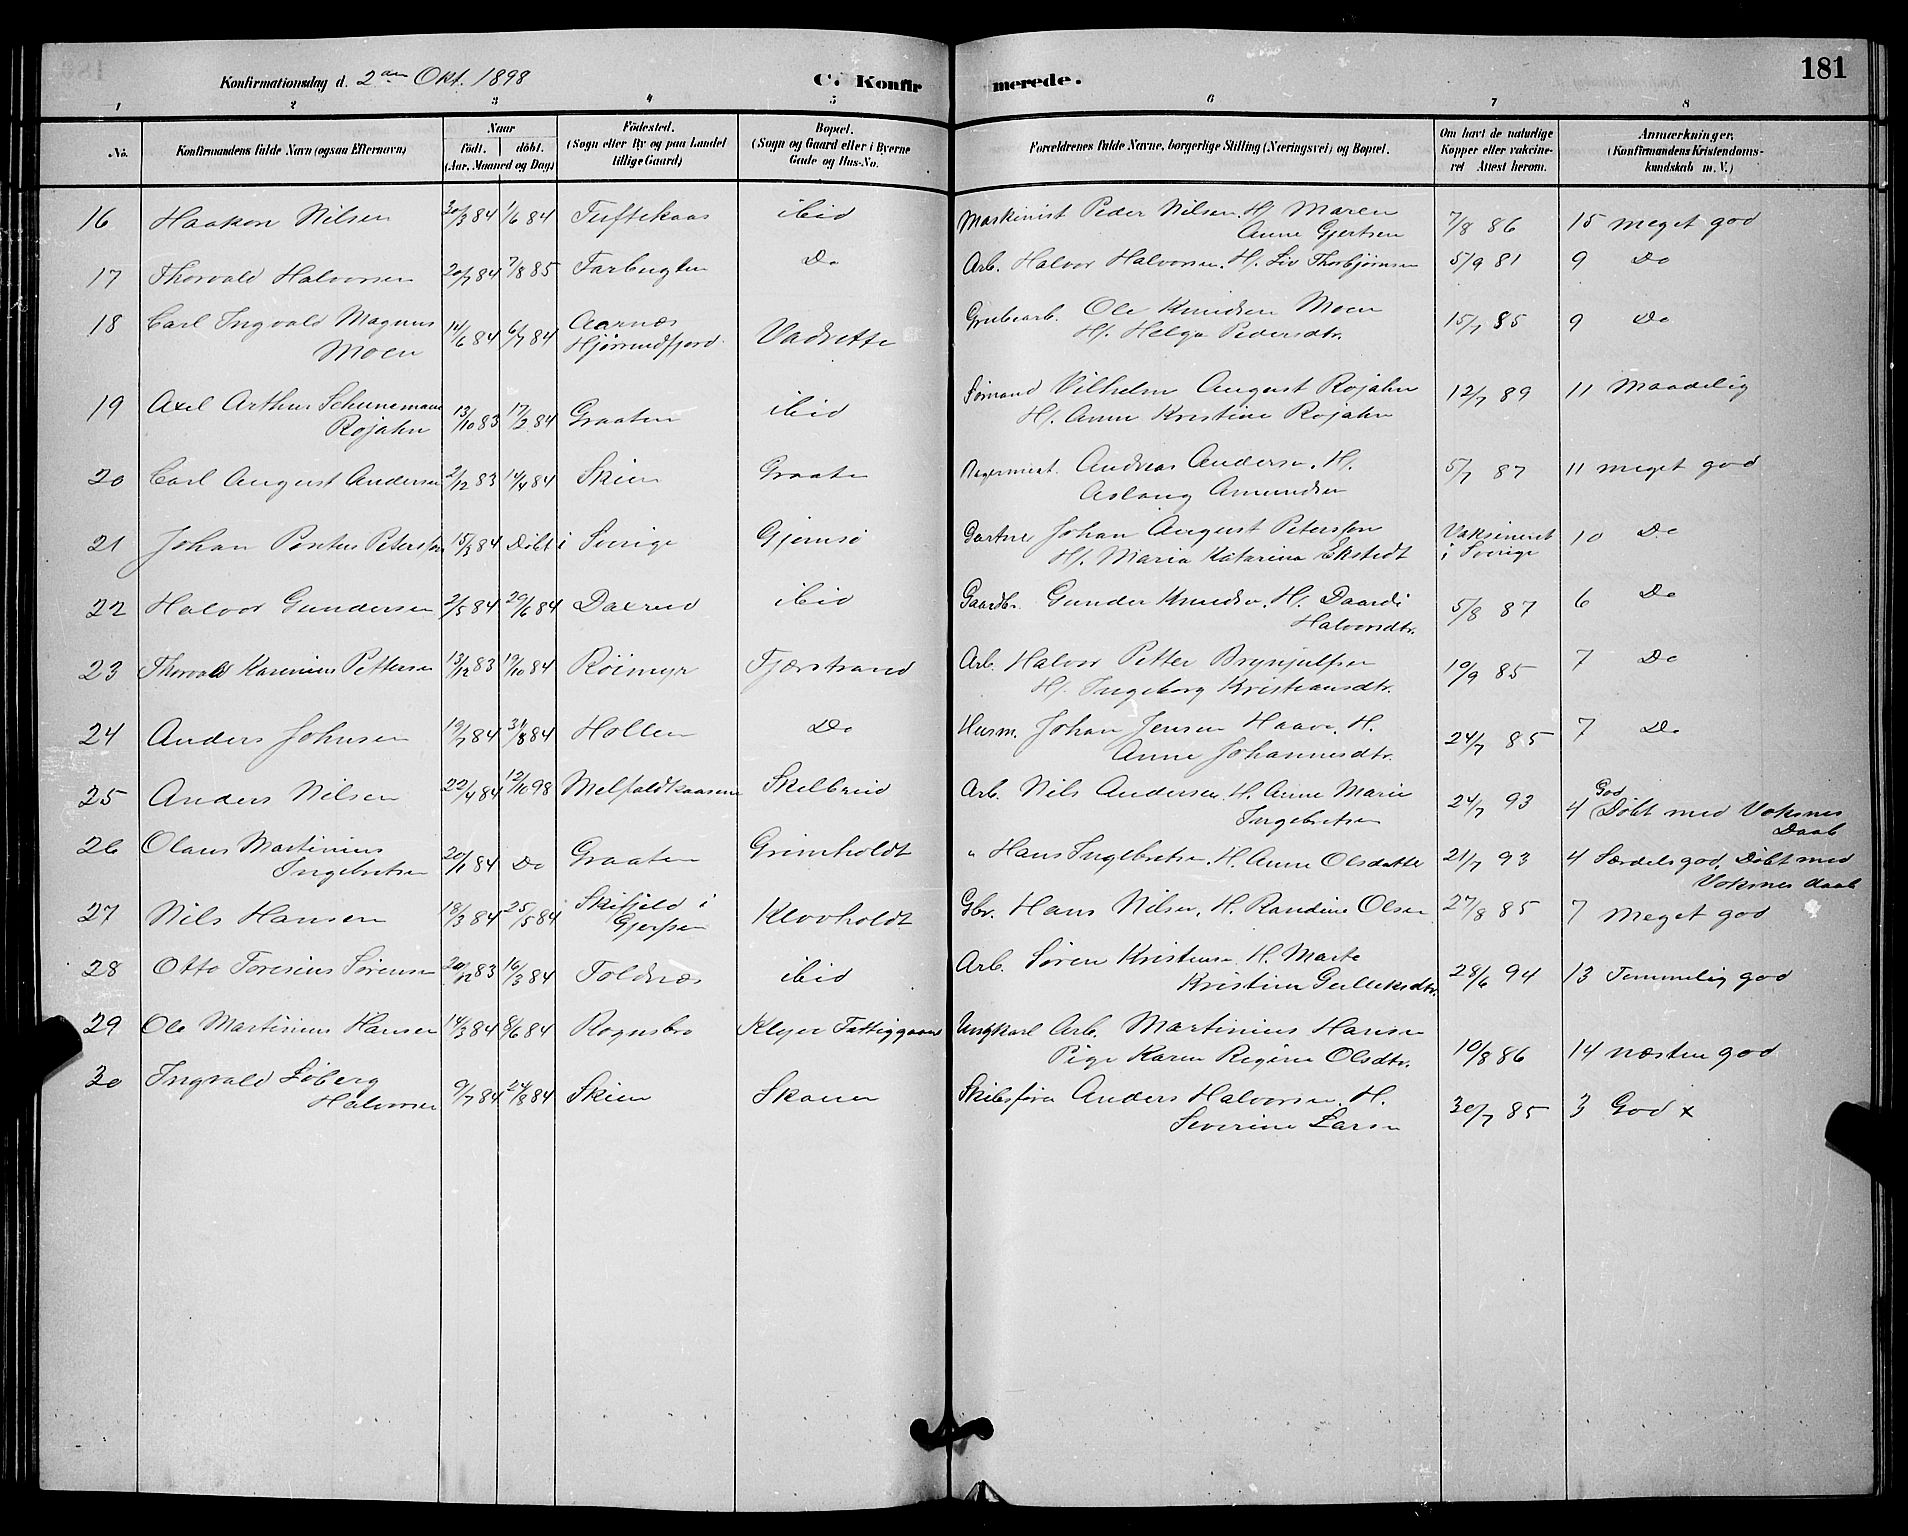 Konfirmationsdag d. 2den Okt. 1898 C. Konfirmerede. 181
1 2 3 4 5 6 7 8
No. Konfirmandens fulde Navn (ogsaa Efternavn) Naar født. døbt. (Aar, Maaned og Dag) Fødested. (Sogn eller By og paa Landet tillige Gaard) Bopæl. (Sogn og Gaard eller i Byerne Gade og Hus-No. Forældrenes fulde Navne, borgerlige Stilling (Næringsvei) og Bopæl. Om havt de naturlige Kopper eller vakcineret Attest herom. Anmærkninger. (Konfirmandens Kristendomskundskab m. V.)
16 Haakon Nilsen 30/3 84 1/6 84 Tuftekaas ibid Maskinist Peder Nilsen. H/ Maren 7/8 86 15 meget god
Anne Gjertsen
17 Thorvald Halvorsen 20/7 84 7/8 85 Farbugten Do Arb. Halvor Halvorsen. H. Liv Thorbjørnsen 5/9 81 9 Do
18 Carl Ingvald Magnus 6/7 84 Aarnæs Vadrette Grubearb. Ole Knudsen Moen 15/7 85 9 Do
Moen Hjørundfjord H/. Helga Pedersdtr.
19 Axel Arthur Schunemann 13/10 83 17/2 84 Graaten ibid Sømand Vilhelm August Rojahn 12/7 89 11 Maadelig
Rojahn H/. Anne Kristine Rojahn
20 Carl August Andersen 2/12 83 14/4 84 Skien Graaten Bagermest. Andreas Andersen. H. 5/7 87 11 meget god
Aslaug Amundsen
21 Johan Pontus Petersson 15/3 84 Døbt i Sverige Gjemsø Gartner Johan August Petersson Vaksineret 10 Do
H/. Maria Katarina Ekstedt i Sverige
22 Halvor Gundersen 2/5 84 29/6 84 Dalrud ibid Gaardbr. Gunder Knudsen. H. Daardi 5/8 87 6 Do
Halvorsdtr.
23 Thorvald Karinius Pettersen 13/12 83 Röimyr Fjærstrand Arb. Halvor Petter Brynjulfsen 19/9 85 7 Do
H/. Ingeborg Kristiansdtr.
24 Anders Johnsen 19/7 84 31/8 84 Hollen Do Husm. Johan Jensen Haave. H. 24/7 85 7 Do
Anne Johannesdtr.
25 Anders Nilsen 22/4 84 12/10 98 Melfaldtkaasene Skilbred Arb. Nils Andersen. H. Anne Marie 24/7 93 4 God
Ingebretsen Døbt med Voksnes Daab
26 Olaus Martinius 20/1 84 Do Graaten Grimholdt " Hans Ingebretsen. H. Anne Olsdatter 21/7 93 4 Særdels god. Døbt med
Ingebretsen Voksnes daab
27 Nils Hansen 18/3 84 25/5 84 Skifjeld i Klovholdt Gbr. Hans Nilsen. H. Randine Olsen 27/8 85 7 meget god
Gjerpen
28 Otto Toresius Sørensen 20/12 83 16/3 84 Foldnæs ibid Arb. Søren Kristensen. H. Marte 28/6 94 13 Temmelig god
Kristine Gulleksdtr.
29 Ole Martinius Hansen 14/3 84 8/6 84 Rognsbro Klyve Fattiggaard Ungkarl Arb. Martinius Hansen 19/8 86 14 næsten god
Pige Karen Regine Olsdtr.
30 Ingvald Løberg 9/7 84 24/8 84 Skien Skauen Skibsfører Anders Halvorsen. H. 30/7 85 3 God x
Halvorsen Severine Larsen